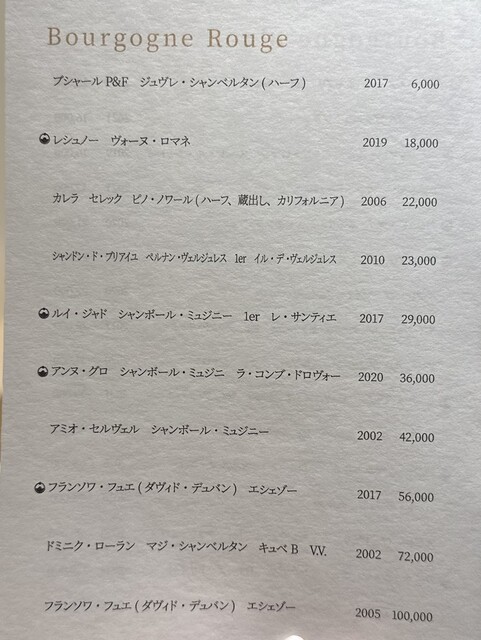 Bourgogne Rouge
ブシャール P&F ジュヴレ・シャンベルタン(ハーフ) 2017 6,000
レシュノー ヴォーヌ・ロマネ 2019 18,000
カレラ セレック ピノ・ノワール(ハーフ、蔵出し、カリフォルニア) 2006 22,000
シャンドン・ド・ブリアイユ ペルナン・ヴェルジュレス 1er イル・デ・ヴェルジュレス 2010 23,000
ルイ・ジャド シャンボール・ミュジニー 1er レ・サンティエ 2017 29,000
アンヌ・グロ シャンボール・ミュジニ ラ・コンブ・ドロヴォー 2020 36,000
アミオ・セルヴェル シャンボール・ミュジニー 2002 42,000
フランソワ・フュエ(ダヴィド・デュバン) エシェゾー 2017 56,000
ドミニク・ローラン マジ・シャンベルタン キュベ B V.V. 2002 72,000
フランソワ・フュエ(ダヴィド・デュバン) エシェゾー 2005 100,000